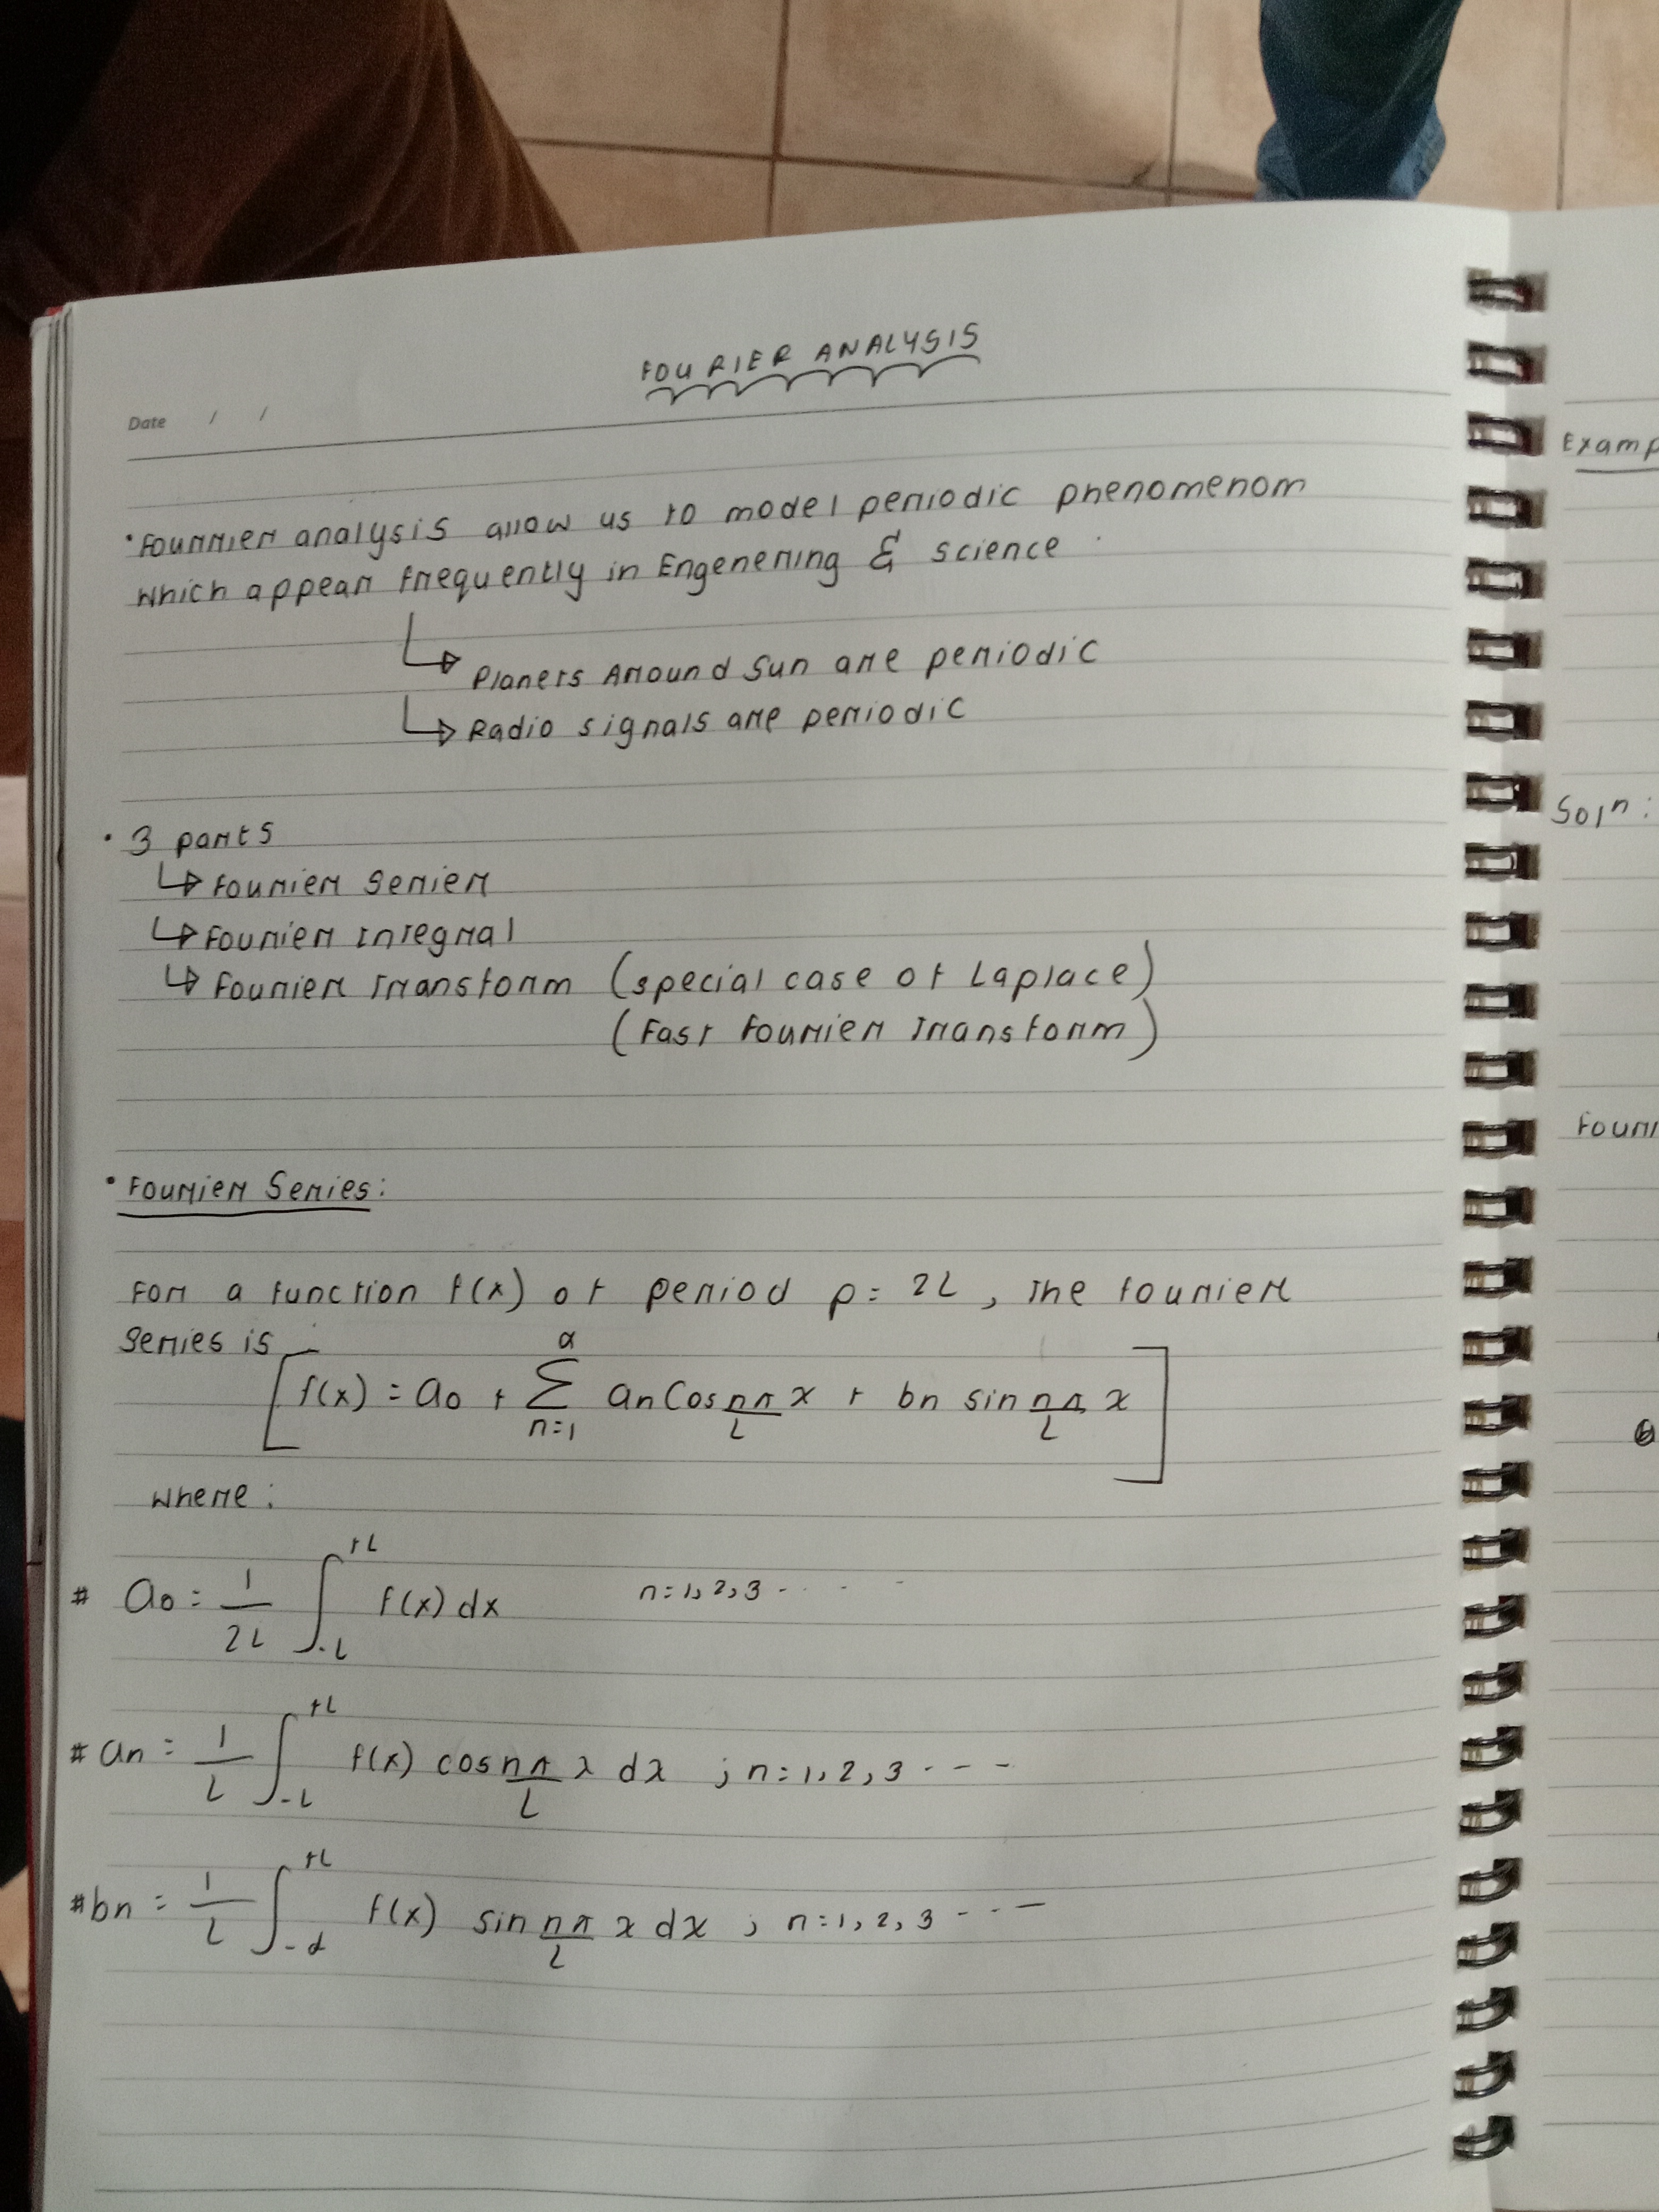 FOURIER ANALYSIS
Date / /
• Fourrier analysis allow us to model periodic phenomenom
which appear frequently in Engenering & science.
↳ Planets Around Sun are periodic
↳ Radio signals are periodic
• 3 parts
↳ Fourier Serier
↳ Fourier Integral
↳ Fourier Transform (special case of Laplace)
(Fast Fourier Transform)
• Fourier Series:
For a function f(x) of period p = 2L, The fourier
Series is
[f(x) = a0 + ∑ n=1 α an Cos nπ/L x + bn sin nπ/L x]
where:
# a0 = 1/2L ∫ -L +L f(x) dx n=1,2,3 . . . .
# an = 1/L ∫ -L +L f(x) cos nπ/L x dx ; n=1,2,3 - - - -
# bn = 1/L ∫ -L +L f(x) sin nπ/L x dx ; n=1,2,3 - - - -
Examp
Soln:
Fouri